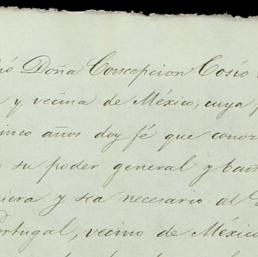 ió Doña Concepcion Cosío
a y vecina de México, cuya
inco años doy fé que conoz
su poder general y bas
iera y sea necesario al
Portugal, vecino de México